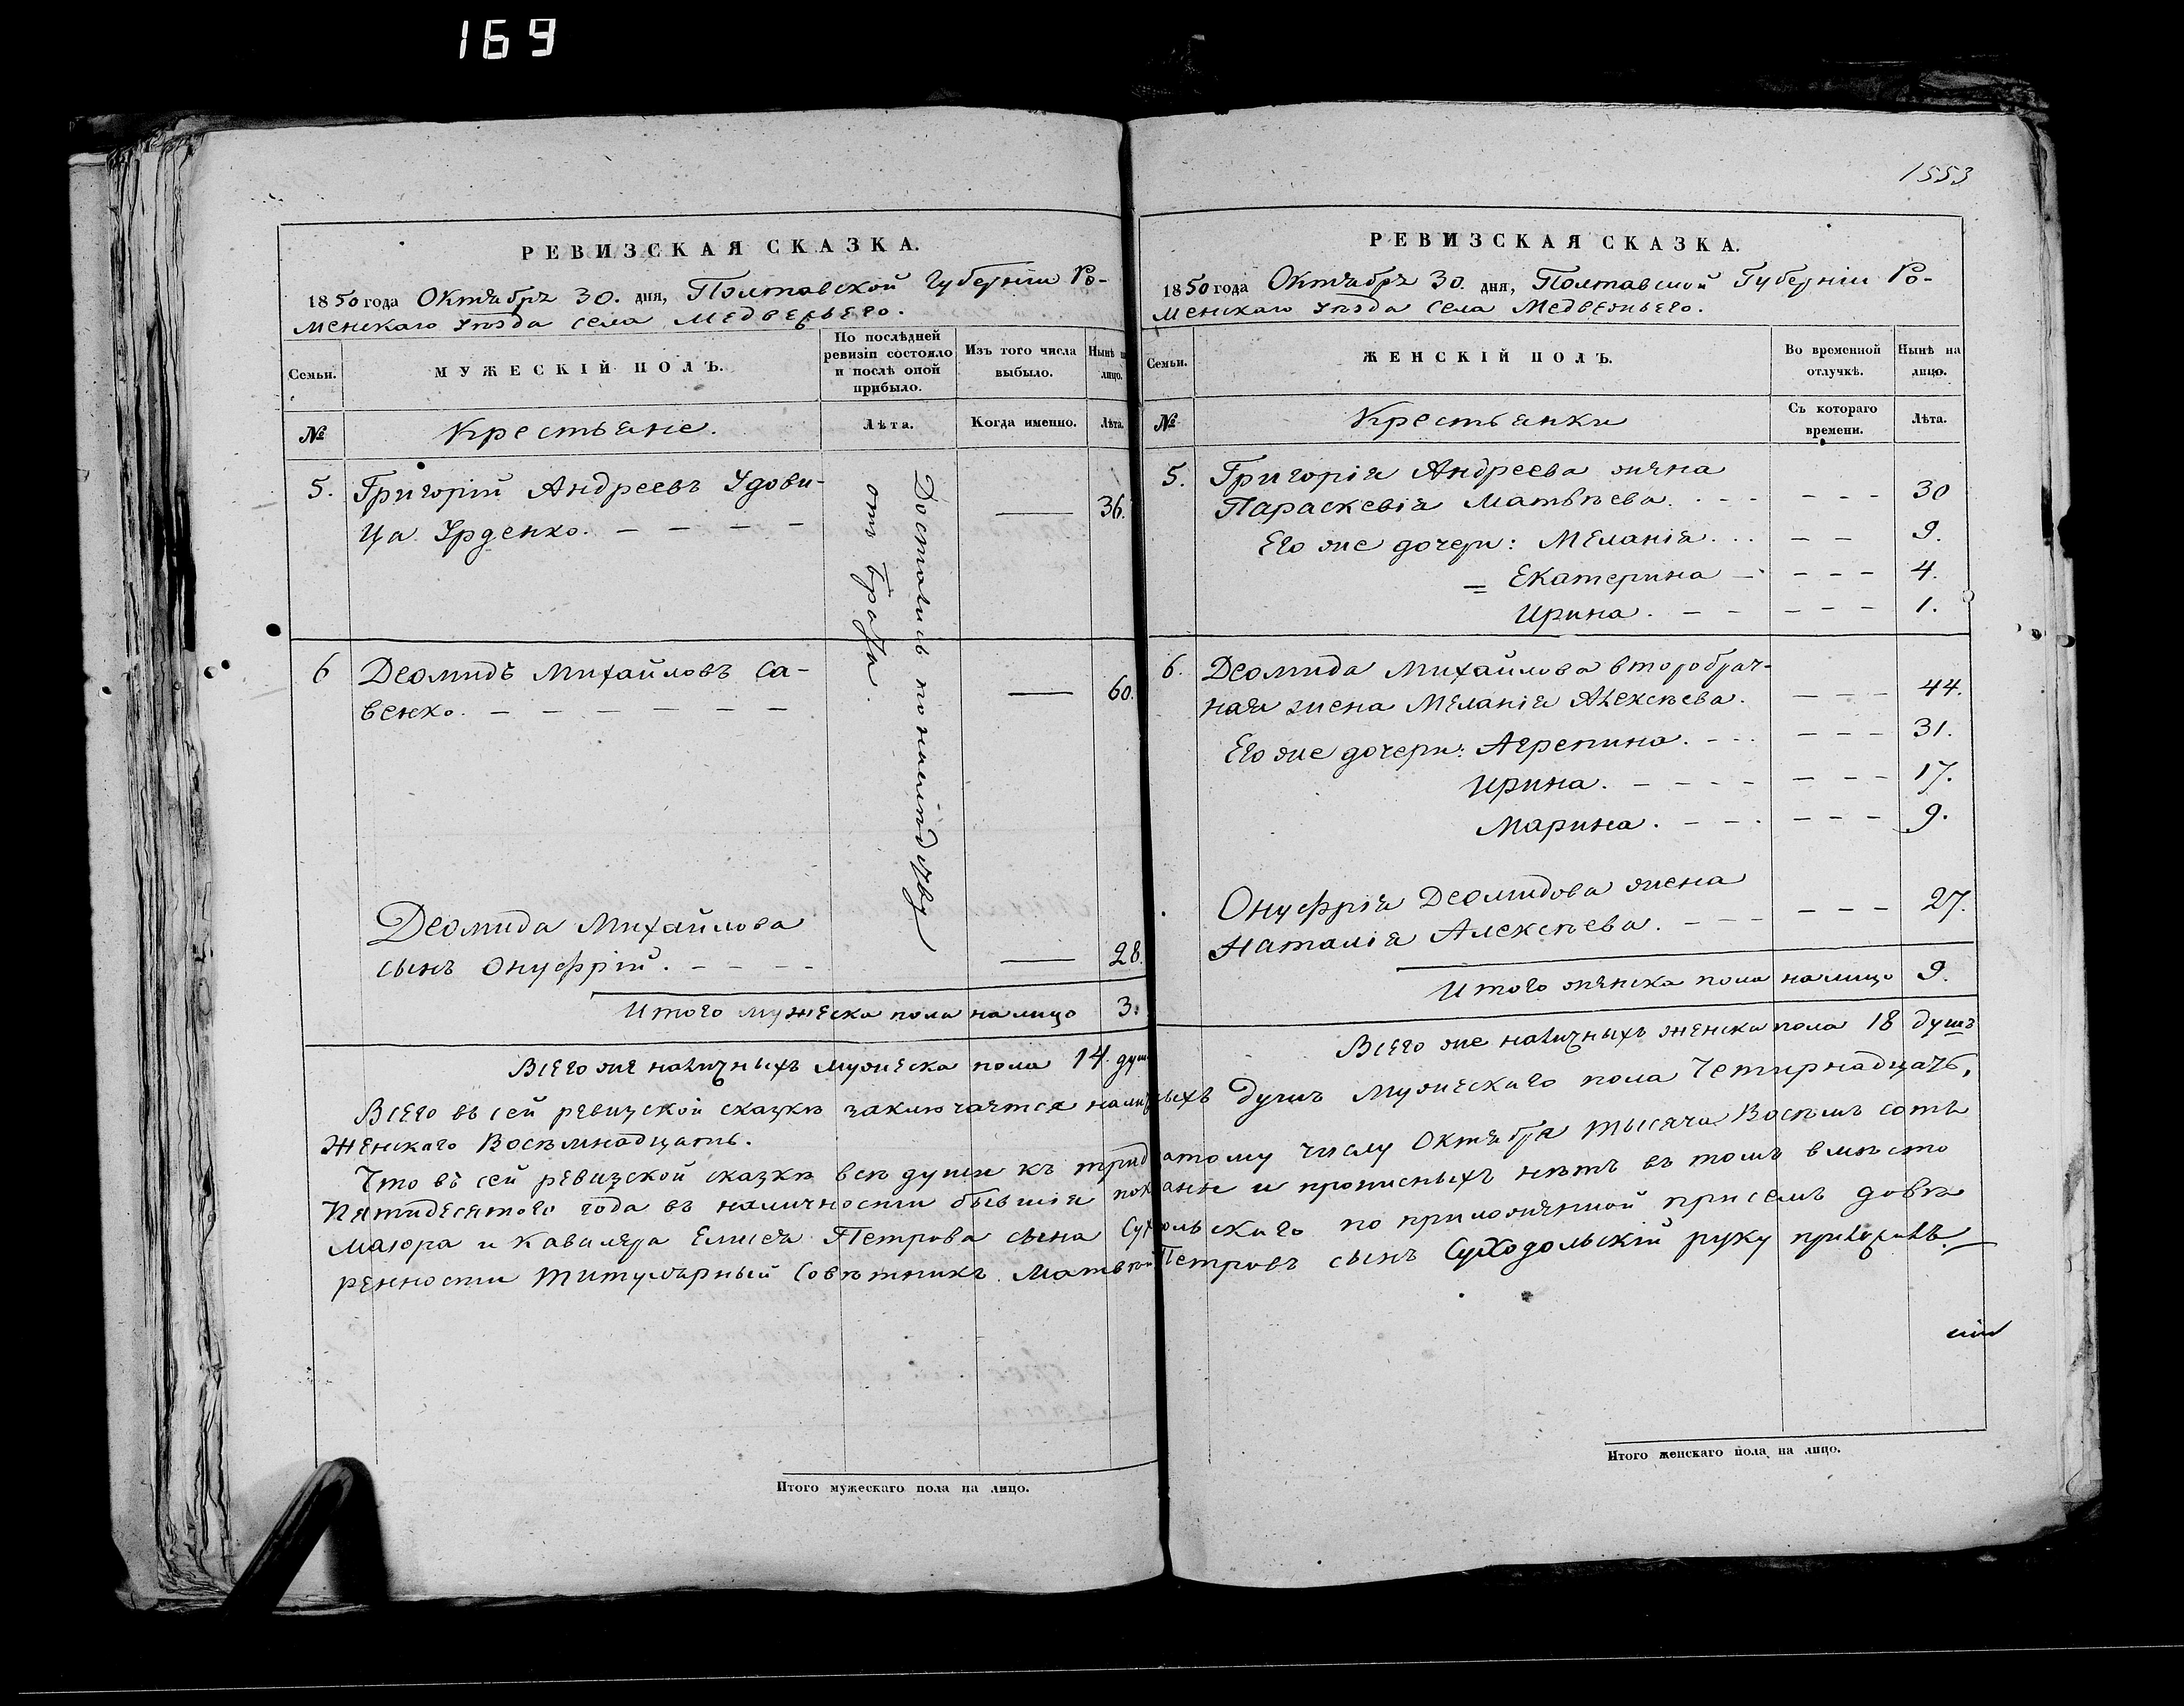 169
1553
РЕВИЗСКАЯ СКАЗКА.
1850 года Октября 30. дня, Полтавской Губерніи Ро-
менскаго Уѣзда села Медвежьего.
Семьи.
МУЖЕСКІЙ ПОЛЪ.
По послѣдней ревизіи состояло и послѣ оной прибыло.
Изъ того числа выбыло.
Нынѣ на лицо.
№
Крестьяне.
Лѣта.
Когда именно.
Лѣта.
Достались по наслѣдству
отъ брата.
5. Григорій Андреевъ Удови-
ца Урденко. — — — — 36.
6 Деомидъ Михайловъ Са-
венко. — — — — — — — 60.
Деомида Михайлова
сынъ Онуфрій. — — — — 28.
Итого мужеска пола налицо 3.
Всего же наличныхъ мужеска пола 14. душ
РЕВИЗСКАЯ СКАЗКА.
1850 года Октября 30. дня, Полтавской Губерніи Ро-
менскаго Уѣзда села Медвежьего.
Семьи.
ЖЕНСКІЙ ПОЛЪ.
Во временной отлучкѣ.
Нынѣ на лицо.
№
Крестьянки
Съ котораго времени.
Лѣта.
5. Григорія Андреева жена
Параскевія Матвѣева. - - - — — — 30
Его же дочери: Меланія. . . — — 9.
= Екатерина — — — — 4.
Ирина. — — — — — 1.
6. Деомида Михайлова второбрач-
ная жена Меланія Алексѣева. — — — 44.
Его же дочери: Агрепина. - - - — — — 31.
Ирина. — — — — — — — 17.
Марина. — — - — — — 9.
Онуфрія Деомидова жена
Наталія Алексѣева. — — — — — — 27.
Итого женска пола налицо 9.
Всего же наличныхъ женска пола 18 душъ
Всего въ сей ревизской сказкѣ заключается наличныхъ душъ мужескаго пола Четирнадцать,
Женскаго Восѣмнадцать.
Что въ сей ревизской сказкѣ всѣ души къ тридцатому числу Октября тысяча Восѣмъ сотъ
Пятидесятого года въ наличности бывшія показаны и прописныхъ нѣтъ въ томъ вмѣсто
Маіора и Кавалера Елисея Петрова сына Суходольскаго по приложенной присемъ довѣ
ренности Титулярный Совѣтникъ Матвѣй Петровъ сынъ Суходольскій руку приложилъ.
Итого мужескаго пола на лицо.
Итого женскаго пола на лицо.